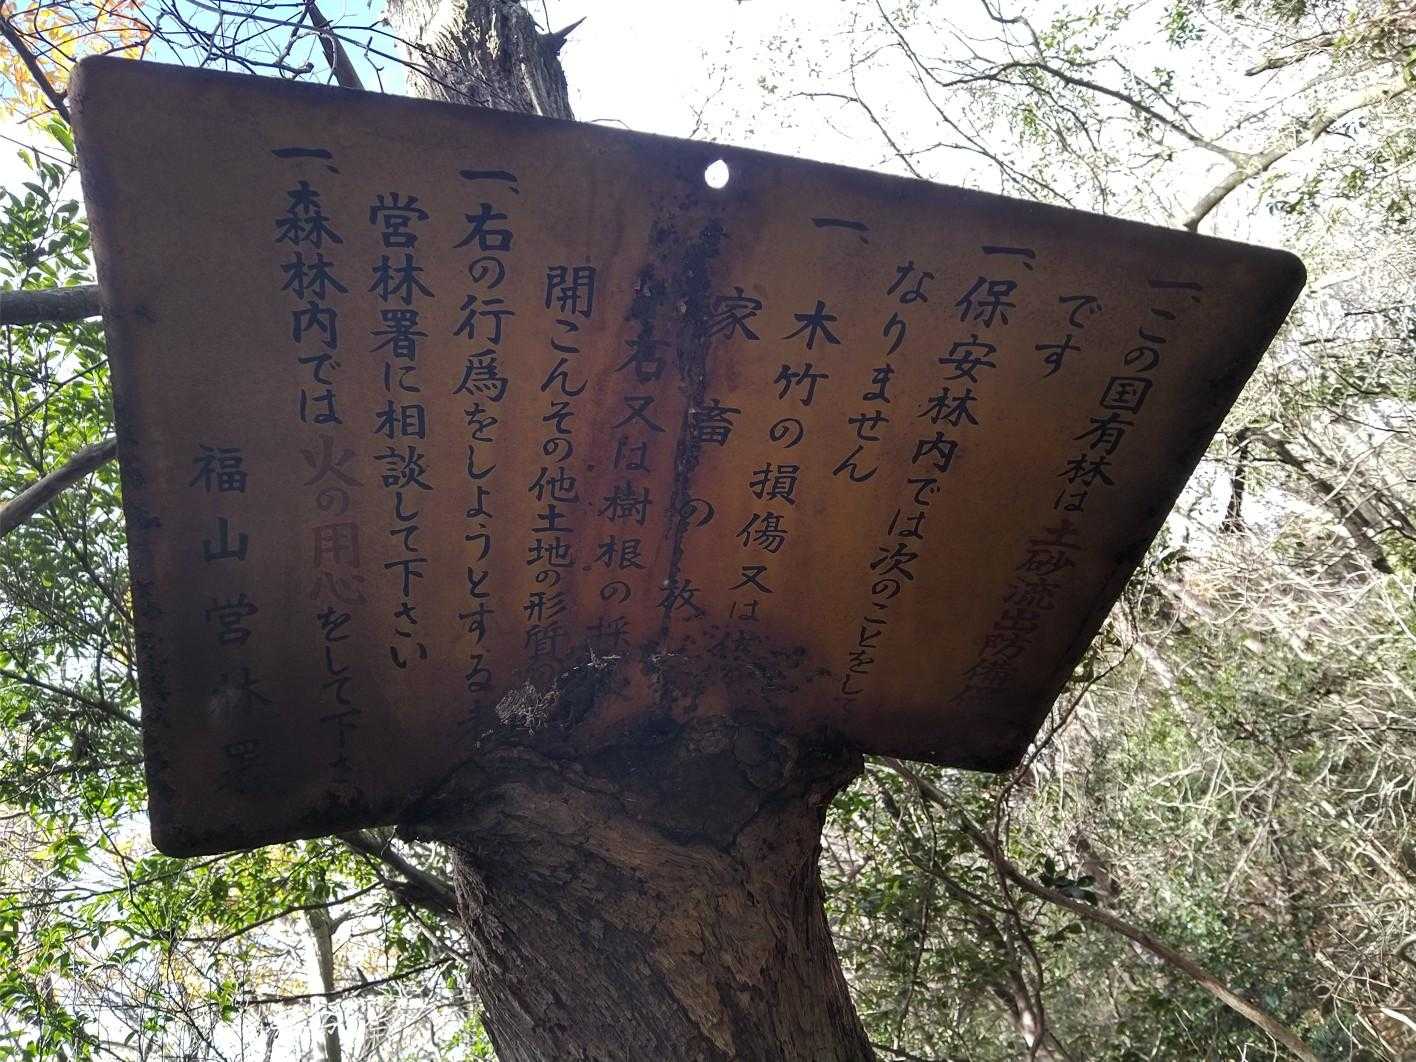 一、この国有林は土砂流出防備
です
一、保安林内では次のことをして
なりません
一、木竹の損傷又は
家畜の放
右又は樹根の採
開こんその他土地の形質の
一、右の行爲をしようとする
営林署に相談して下さい
一、森林内では火の用心をして下さ
福山営林署